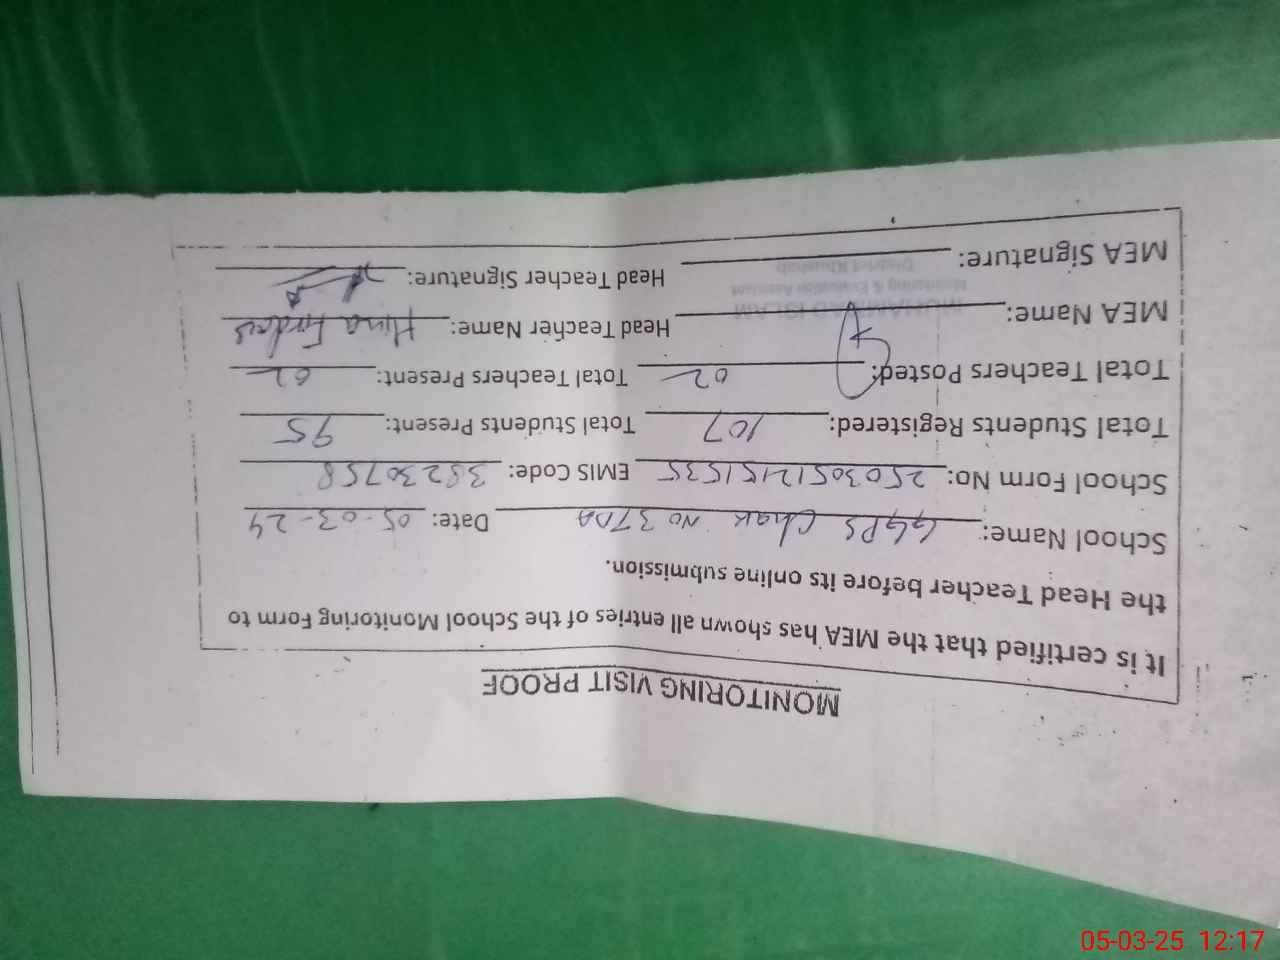 MONITORING VISIT PROOF
It is certified that the MEA has shown all entries of the School Monitoring Form to
the Head Teacher before its online submission.
School Name: GGPS Chak No 37DA Date: 05-03-24
School Form No: 25030512151535 EMIS Code: 38230758
Total Students Registered: 107 Total Students Present: 95
Total Teachers Posted: 02 Total Teachers Present: 02
MEA Name: MUHAMMAD ISLAM Head Teacher Name: Hina Firdous
Monitoring & Evaluation Assistant
District Khushab
MEA Signature: Head Teacher Signature:
05-03-25 12:17